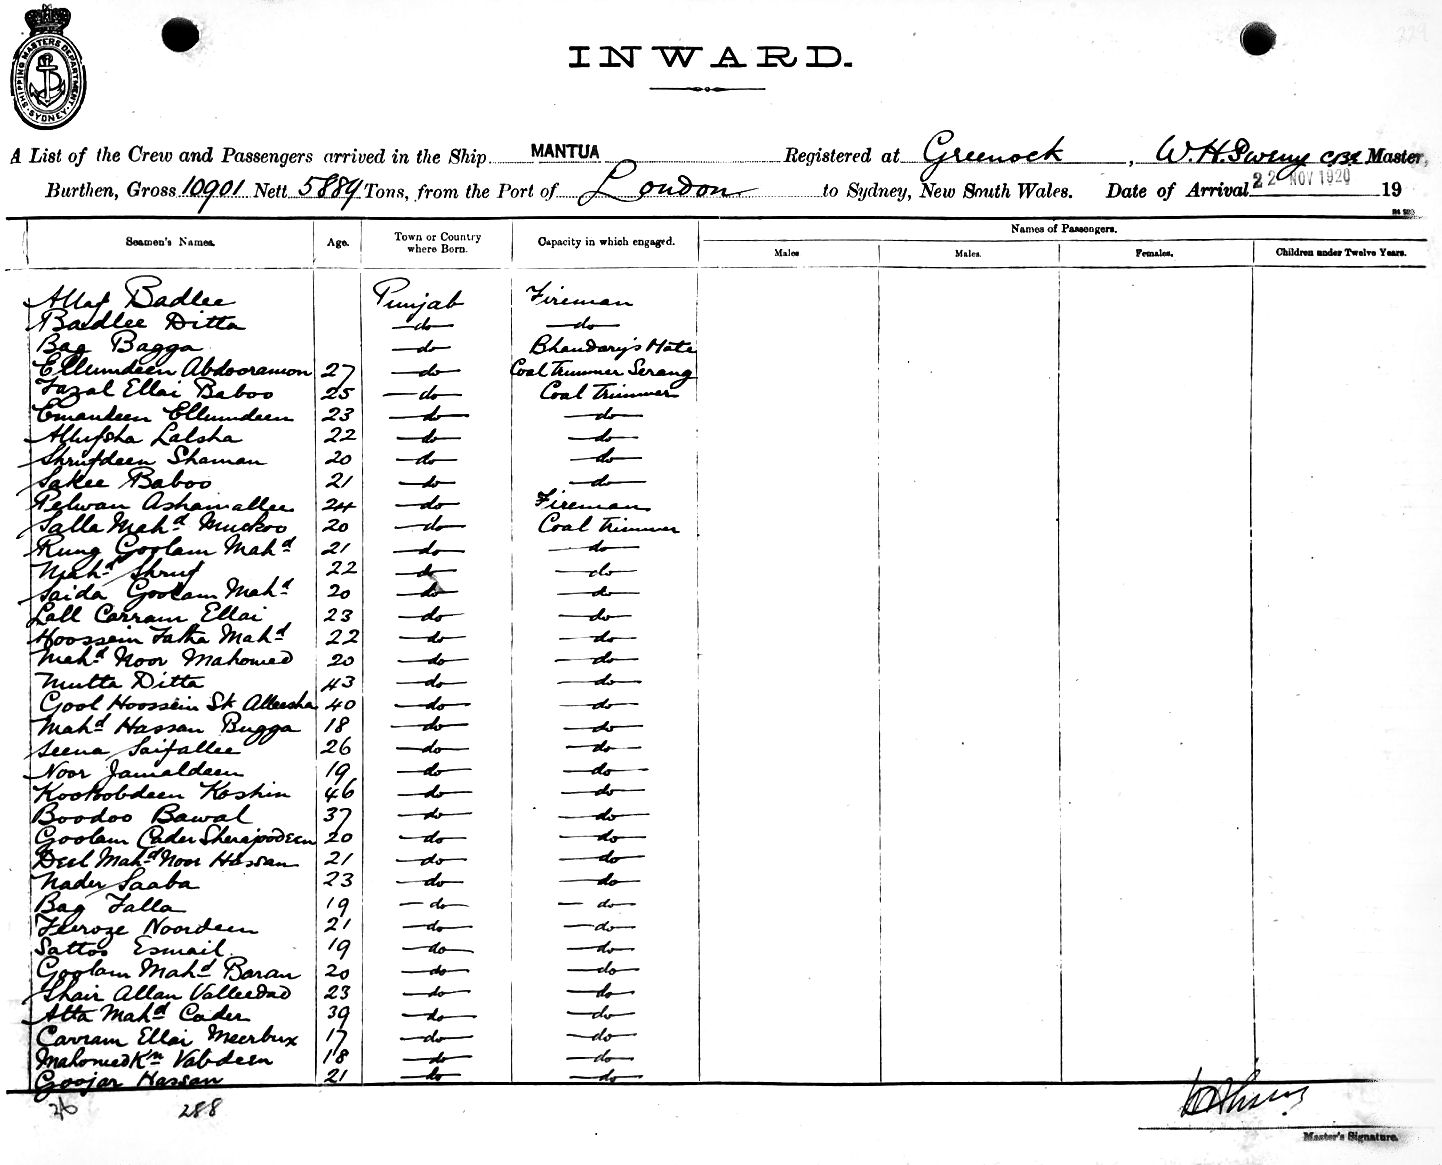 229
SHIPPING MASTERS DEPARTMENT SYDNEY
INWARD.
A List of the Crew and Passengers arrived in the Ship MANTUA Registered at Greenock, W.H. Sweny CBE Master,
Burthen, Gross 10901 Nett 5884 Tons, from the Port of London to Sydney, New South Wales. Date of Arrival 22 NOV 1920 19
Seamen's Names. Age. Town or Country where Born. Capacity in which engaged. Names of Passengers.
Males Males. Females. Children under Twelve Years.
Allaf Badlee Punjab Fireman
Badlee Ditta do do
Bag Bagga do Bhandary's Mate
Ellumdeen Abdooramon 27 do Coal Trimmer Serang
Fazal Ellai Baboo 25 do Coal Trimmer
Emamdeen Ellumdeen 23 do do
Allufsha Lalsha 22 do do
Shrufdeen Shaman 20 do do
Sakee Baboo 21 do do
Pelwan Ashamallee 24 do Fireman
Salla Mahd Muckoo 20 do Coal Trimmer
Rung Goolam Mahd 21 do do
Mahd Shruf 22 do do
Saida Goolam Mahd 20 do do
Lall Carram Ellai 23 do do
Hoossein Fatha Mahd 22 do do
Mahd Noor Mahomed 20 do do
Mutta Ditta 43 do do
Gool Hoossein Sk Alleesha 40 do do
Mahd Hassan Bugga 18 do do
Seena Saifallee 26 do do
Noor Jamaldeen 19 do do
Kootobdeen Koshin 46 do do
Boodoo Bawal 37 do do
Goolam Cader Sherajoodeen 20 do do
Deel Mahd Noor Hassan 21 do do
Nader Saaba 23 do do
Bag Falla 19 do do
Feeroze Noordeen 21 do do
Sattos Esmail 19 do do
Goolam Mahd Baran 20 do do
Shair Allan Valleedad 23 do do
Atta Mahd Cader 39 do do
Carram Ellai Meerbux 17 do do
Mahomed Kn Vabdeen 18 do do
Goojar Hassan 21 do do
36 288
Master's Signature.